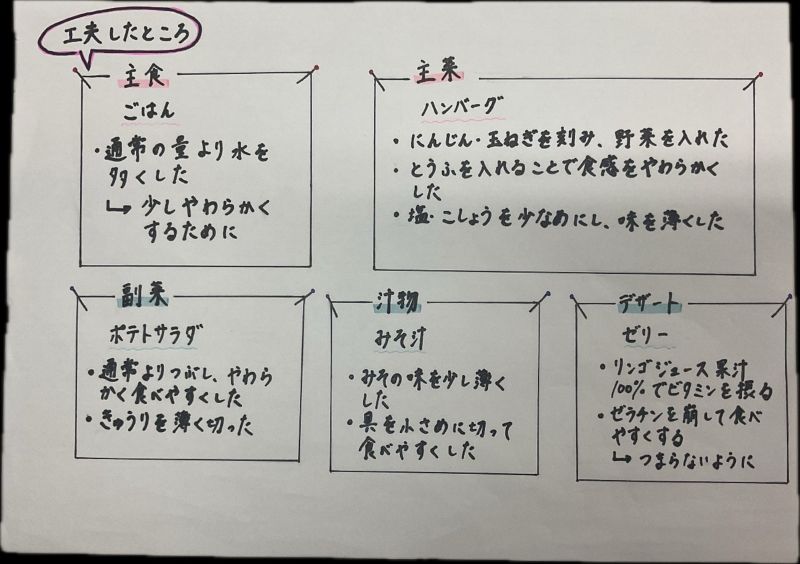 工夫したところ
主食
ごはん
・通常の量より水を
多くした
↳ 少しやわらかく
するために
主菜
ハンバーグ
・にんじん・玉ねぎを刻み、野菜を入れた
・とうふを入れることで食感をやわらかく
した
・塩・こしょうを少なめにし、味を薄くした
副菜
ポテトサラダ
・通常よりつぶし、やわら
かく食べやすくした
・きゅうりを薄く切った
汁物
みそ汁
・みその味を少し薄く
した
・具を小さめに切って
食べやすくした
デザート
ゼリー
・リンゴジュース果汁
100%でビタミンを摂る
・ゼラチンを崩して食べ
やすくする
↳ つまらないように